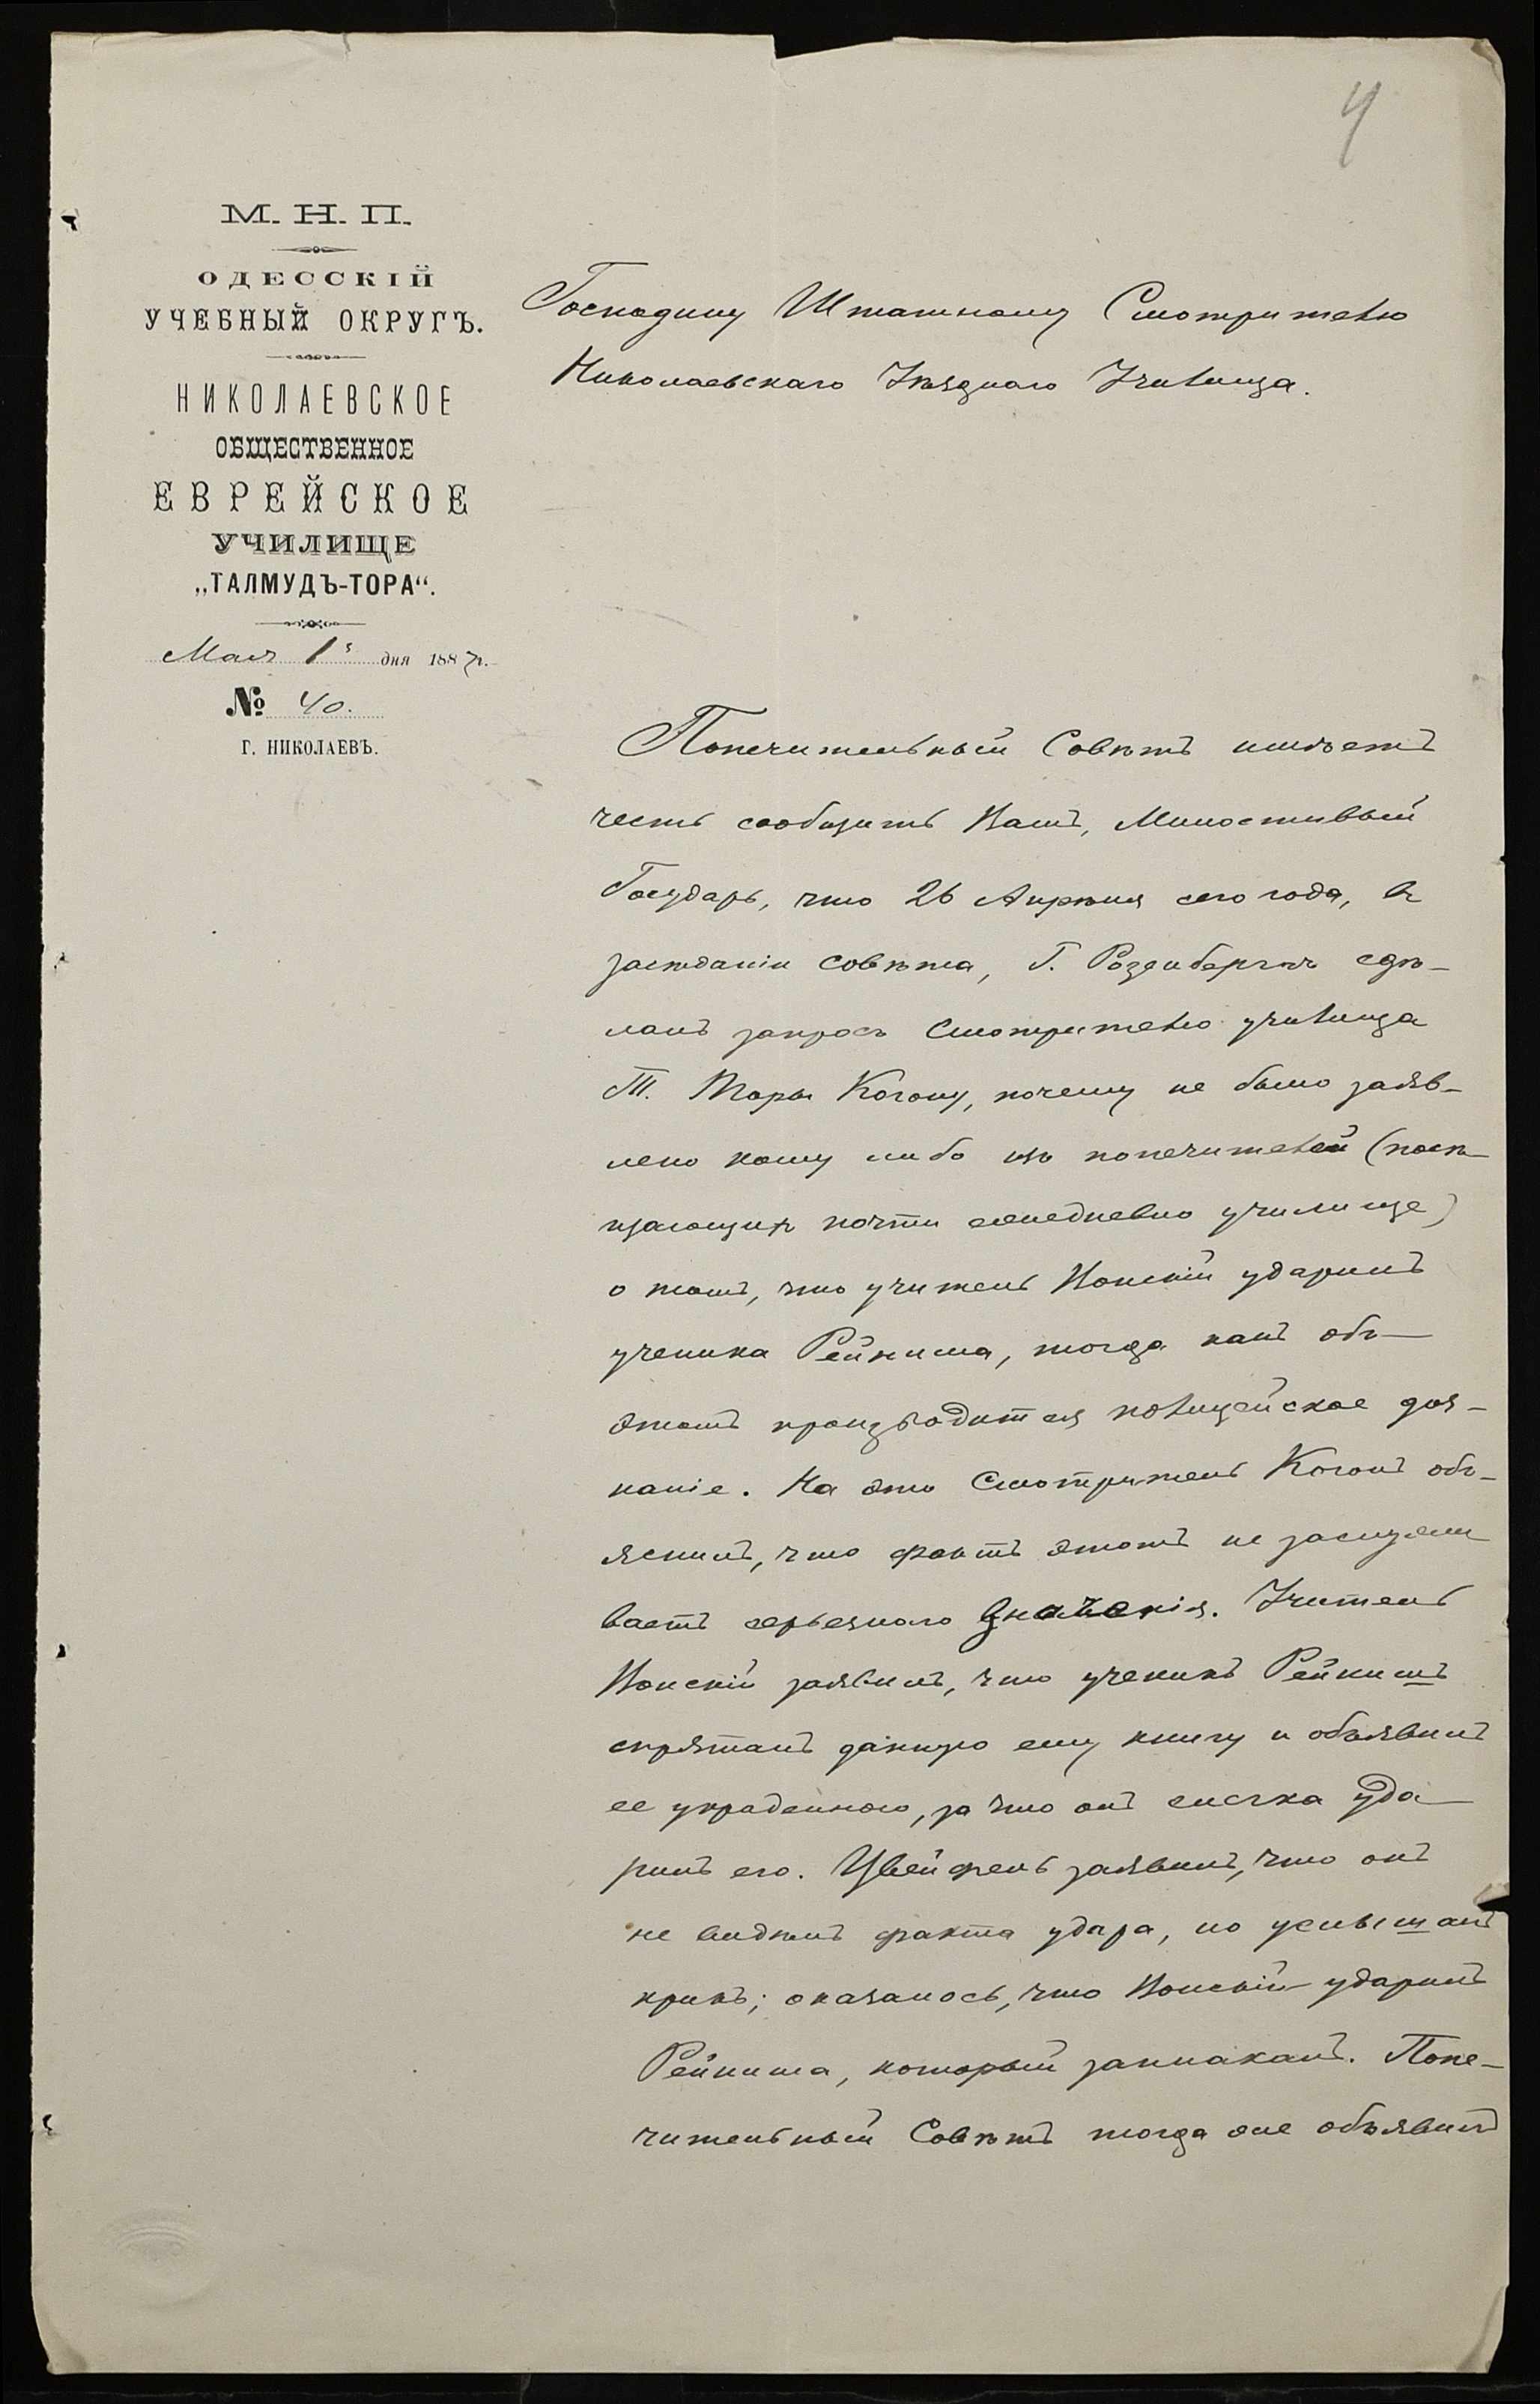 4
М. Н. П.
ОДЕССКІЙ
УЧЕБНЫЙ ОКРУГЪ.
НИКОЛАЕВСКОЕ
ОБЩЕСТВЕННОЕ
ЕВРЕЙСКОЕ
УЧИЛИЩЕ
„ТАЛМУДЪ-ТОРА“.
Мая 1 дня 1887 г.
№ 40.
Г. НИКОЛАЕВЪ.
Господину Штатному Смотрителю
Николаевскаго Уѣзднаго Училища.
Попечительный Совѣтъ имѣетъ
честь сообщить Вамъ, Милостивый
Государь, что 26 Апрѣля сего года, въ
засѣданіи Совѣта, Г. Розенбергъ сдѣ-
лалъ запросъ Смотрителю училища
Т. Торы Когону, почему не было заяв-
лено кому либо изъ попечителей (посѣ-
щающихъ почти ежедневно училище)
о томъ, что учитель Понскій ударилъ
ученика Рейниша, тогда какъ объ
этомъ производится полицейское доз-
наніе. На это Смотритель Когонъ объ-
яснилъ, что фактъ этотъ не заслужи
ваетъ серьезнаго значенія. Учитель
Понскій заявилъ, что ученикъ Рейнишъ
спряталъ данную ему книгу и объявилъ
ее украденною, за что онъ слегка уда
рилъ его. Цвейфель заявилъ, что онъ
не видѣлъ факта удара, но услышалъ
крикъ; оказалось, что Понскій ударилъ
Рейниша, который заплакалъ. Попе-
чительный Совѣтъ тогда же объявилъ